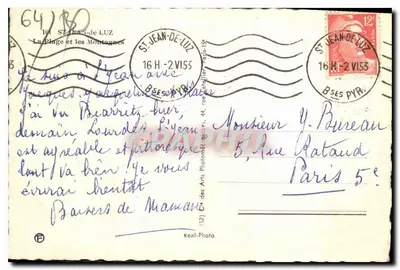 64/BO
104 ST-JEAN-de-LUZ
La Plage et les Montagnes
ST JEAN-DE-LUZ
16 H -2 VI 53
Bses PYR.
ST JEAN-DE-LUZ
16 H -2 VI 53
Bses PYR.
12F
Je suis à St Jean avec
J'ai vu Biarritz hier,
demain Lourdes St Jean
est agréable et pittoresque
tout va bien je vous
écrirai bientôt
Baisers de Maman
Monsieur Y. Bureau
5, Rue Rataud
Paris 5e
Real-Photo